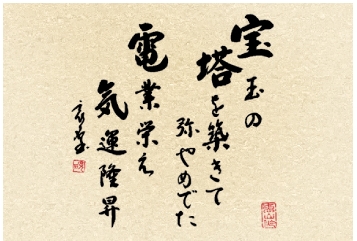 宝玉の
塔を築きて
弥やめでた
電業栄え
気運隆昇